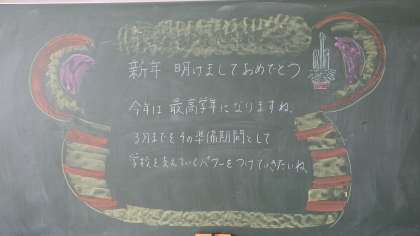 新年 明けましておめでとう
今年は 最高学年になりますね。
3月までをその準備期間として
学校を支えていくパワーをつけていきたいね。